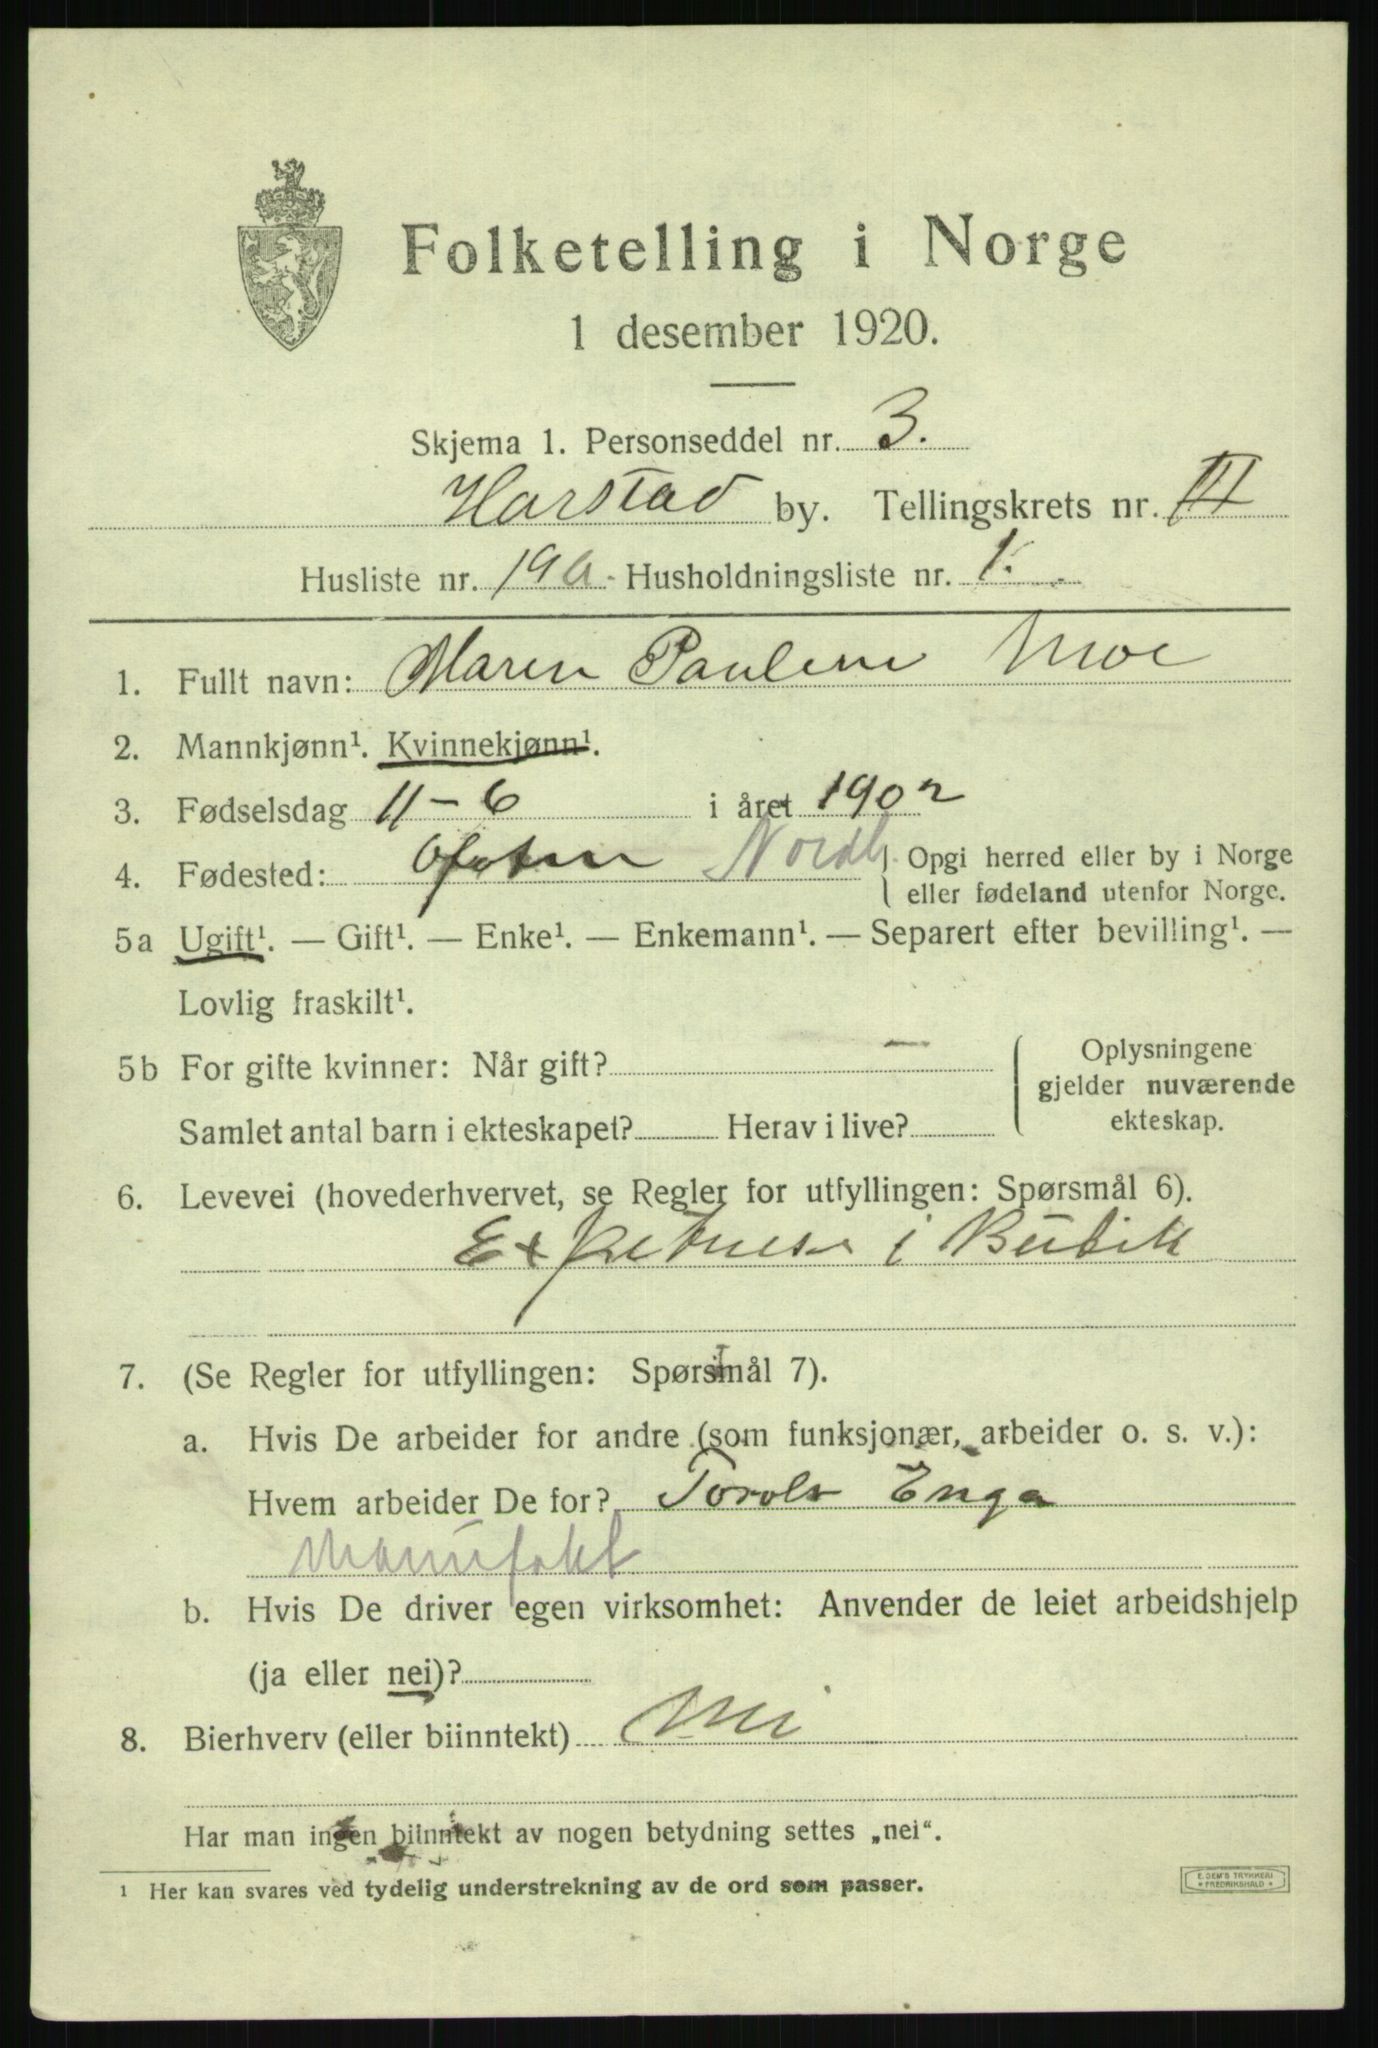 Folketelling i Norge
1 desember 1920.
Skjema 1. Personseddel nr. 3.
Harstad by. Tellingskrets nr. III
Husliste nr. 19a. Husholdningsliste nr. 1.
1. Fullt navn: Maren Paulene Moe
2. Mannkjønn¹. Kvinnekjønn¹.
3. Fødselsdag 11-6 i året 1902
4. Fødested: Ofoten Nordl Opgi herred eller by i Norge
eller fødeland utenfor Norge.
5a Ugift¹. — Gift¹. — Enke¹. — Enkemann¹. — Separert efter bevilling¹. —
Lovlig fraskilt¹.
5b For gifte kvinner: Når gift? — Oplysningene
gjelder nuværende
Samlet antal barn i ekteskapet? Herav i live? ekteskap.
6. Levevei (hovederhvervet, se Regler for utfyllingen: Spørsmål 6).
i Butik
7. (Se Regler for utfyllingen: Spørsmål 7).
a. Hvis De arbeider for andre (som funksjonær, arbeider o. s. v.):
Hvem arbeider De for? Torolv Enga
Manufakt
b. Hvis De driver egen virksomhet: Anvender de leiet arbeidshjelp
(ja eller nei)?
8. Bierhverv (eller biinntekt) Nei
Har man ingen biinntekt av nogen betydning settes „nei“.
¹ Her kan svares ved tydelig understrekning av de ord som passer.
E. SEM'S TRYKKERI
* FREDRIKSHALD *